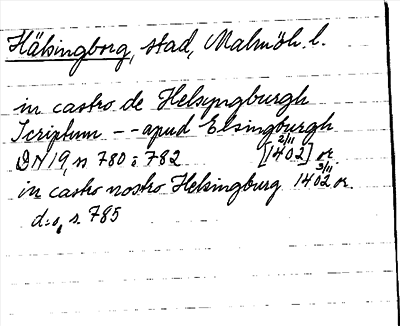 Hälsingborg, stad, Malmöh. l.
in castro de Helsyngburgh
Scriptum -- apud Elsingburgh
DN 19, n 780 o 782 [1402] 2/11 or.
in castro nostro Helsingburg 1402 3/11 or.
d:o, n. 785